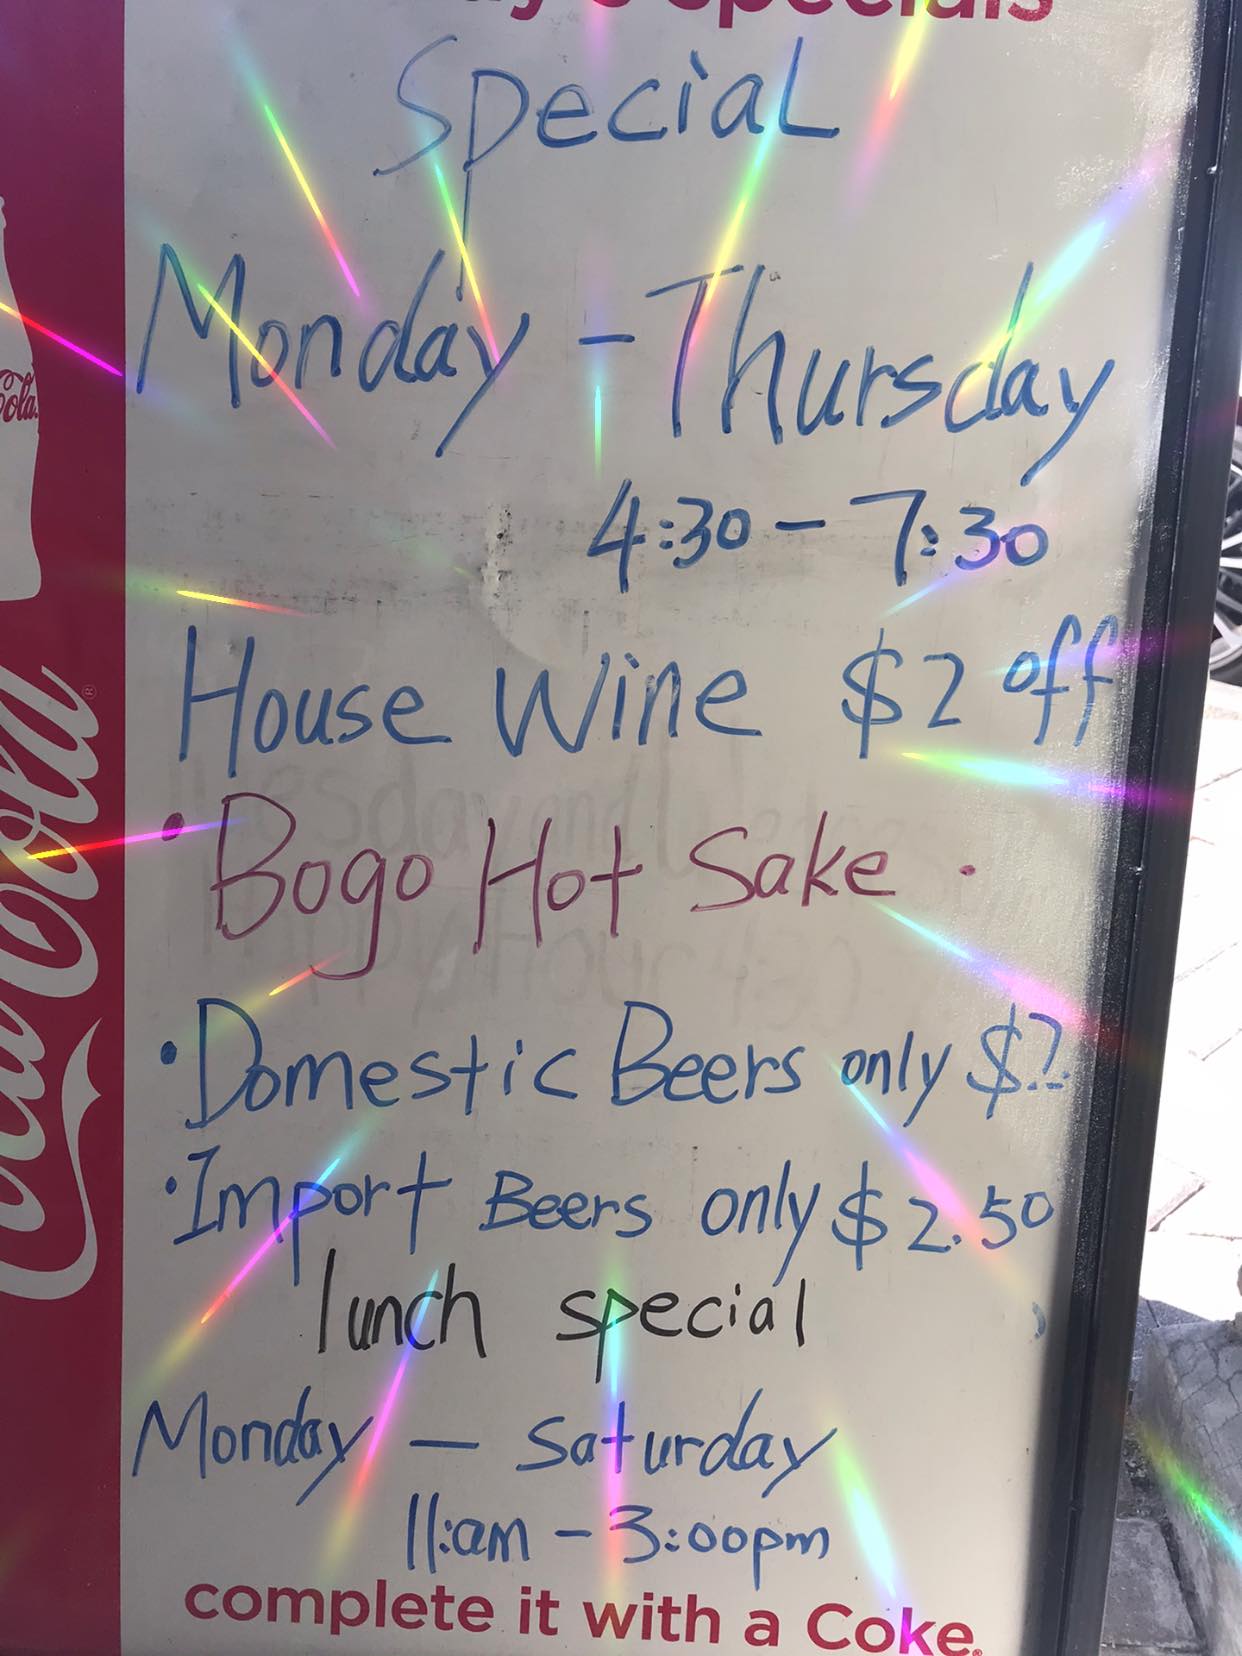 specials
Special
Monday - Thursday
4:30 - 7:30
House Wine $2 off
• Bogo Hot Sake •
• Domestic Beers only $2
• Import Beers only $2.50
lunch special
Monday - Saturday
11:am - 3:00pm
complete it with a Coke.
Coca-Cola
Cola